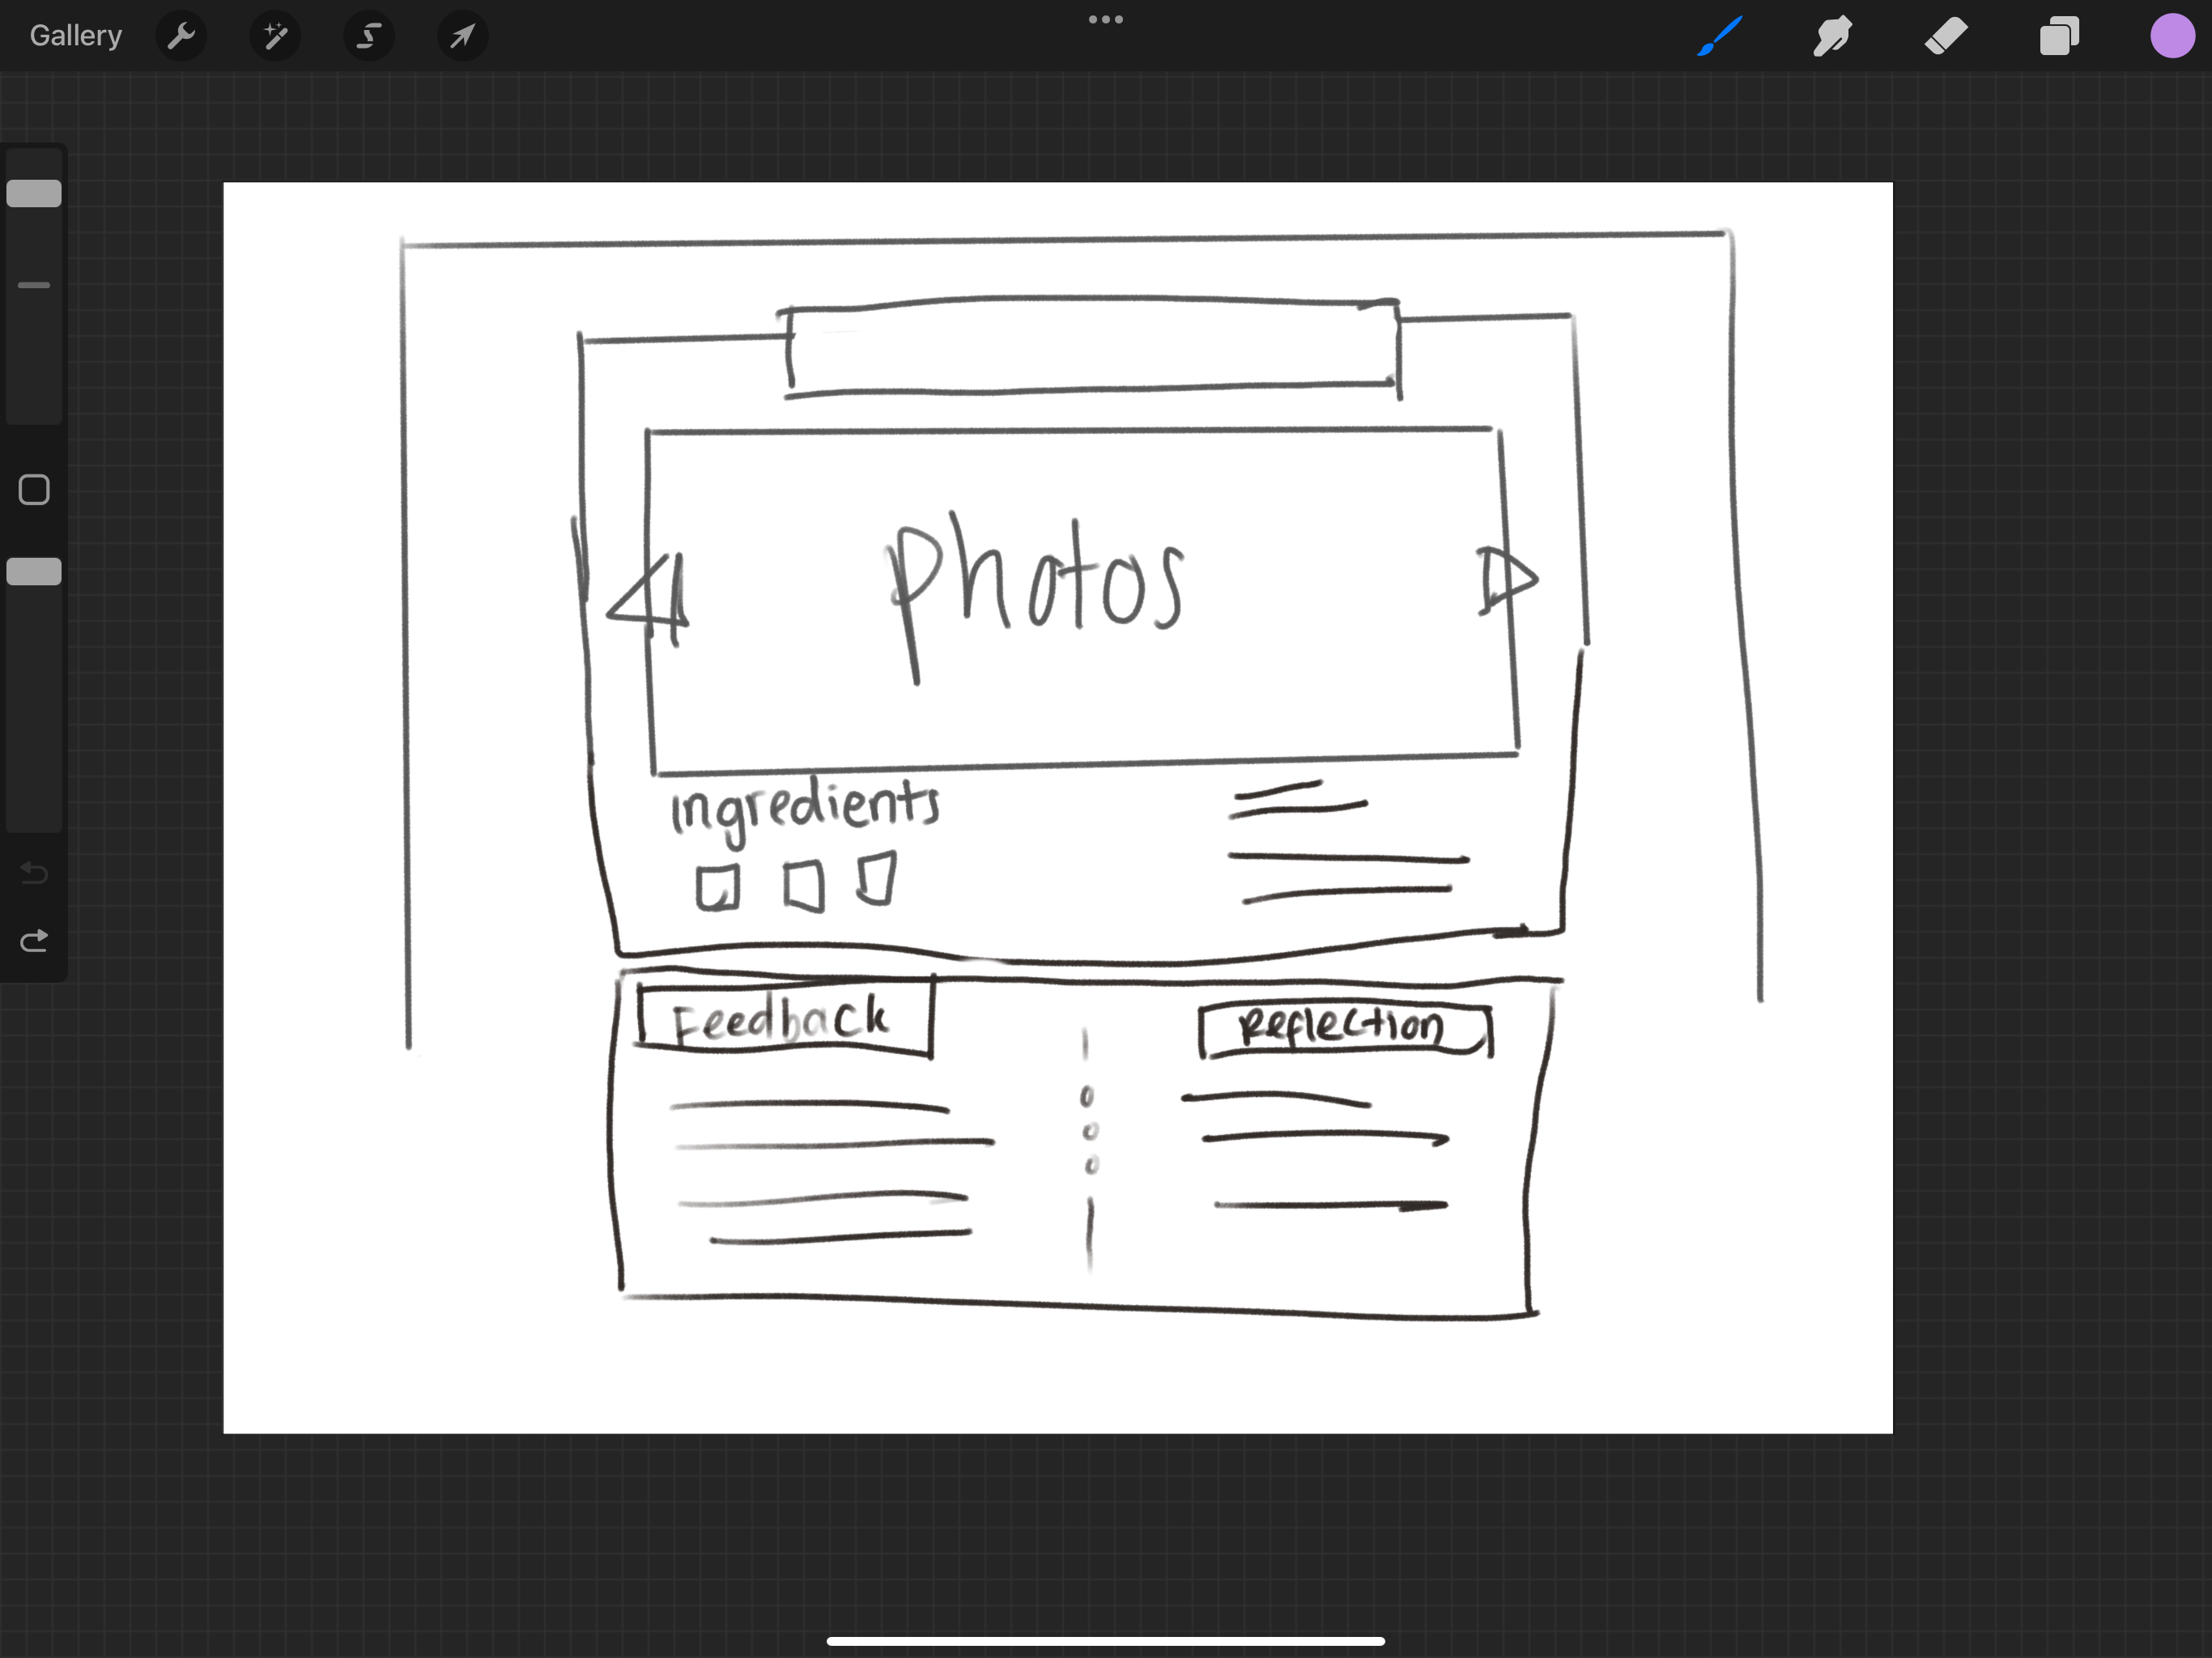 Gallery
Photos
Ingredients
Feedback
Reflection